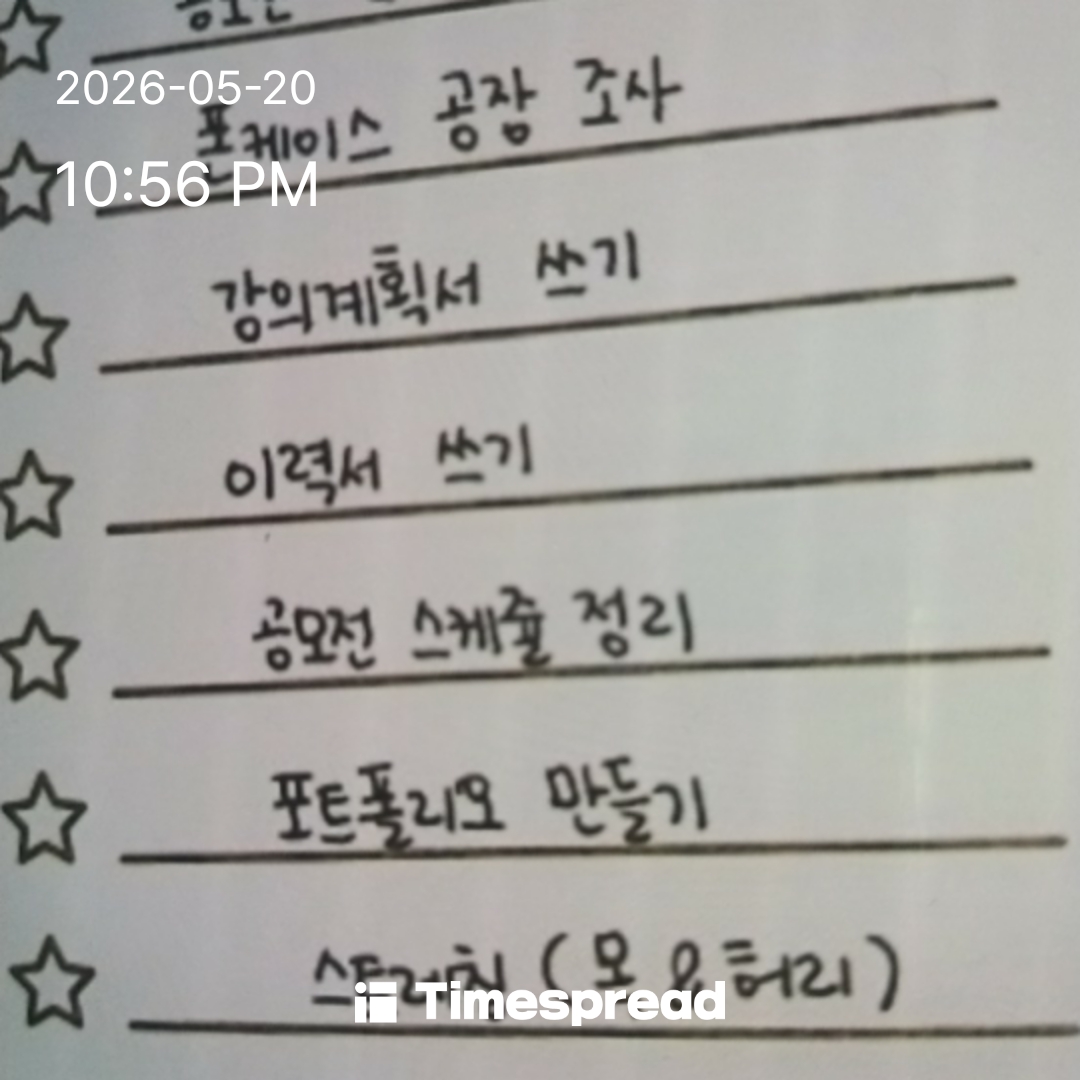 공모전
2026-05-20
폰케이스 공장 조사
10:56 PM
강의계획서 쓰기
이력서 쓰기
공모전 스케쥴 정리
포트폴리오 만들기
스트레칭 (목 & 허리)
Timespread